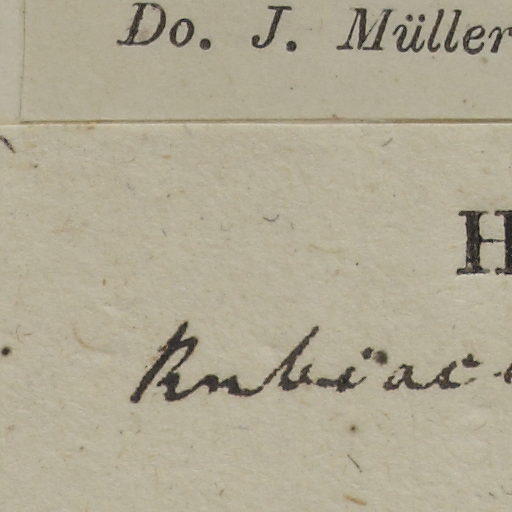 Do. J. Müller
H
Rubiace